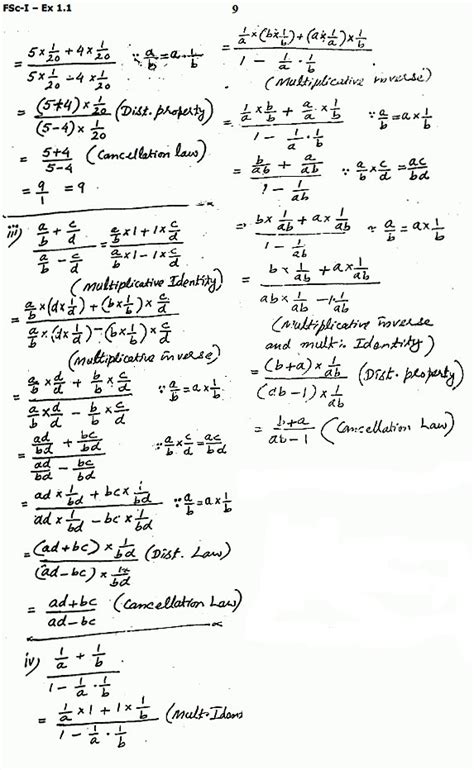 FSc-I – Ex 1.1
9
= (5×1/20 + 4×1/20)/(5×1/20 - 4×1/20) ∵ a/b = a·1/b
= ((5+4)×1/20)/((5-4)×1/20) (Dist. property)
= (5+4)/(5-4) (Cancellation law)
= 9/1 = 9
iii) (a/b + c/d)/(a/b - c/d) = (a/b×1 + 1×c/d)/(a/b×1 - 1×c/d)
(Multiplicative Identity)
= (a/b×(d×1/d) + (b×1/b)×c/d)/(a/b×(d×1/d) - (b×1/b)×c/d)
(Multiplicative inverse)
= (a/b×d/d + b/b×c/d)/(a/b×d/d - b/b×c/d) ∵ a/b = a×1/b
= (ad/bd + bc/bd)/(ad/bd - bc/bd) ∵ a/b×c/d = ac/bd
= (ad×1/bd + bc×1/bd)/(ad×1/bd - bc×1/bd) ∵ a/b = a×1/b
= ((ad+bc)×1/bd)/((ad-bc)×1/bd) (Dist. Law)
= (ad+bc)/(ad-bc) (Cancellation Law)
iv) (1/a + 1/b)/(1 - 1/a·1/b)
= (1/a×1 + 1×1/b)/(1 - 1/a·1/b)
= (1/a×(b×1/b) + (a×1/a)×1/b)/(1 - 1/a·1/b)
(Multiplicative inverse)
= (1/a×b/b + a/a×1/b)/(1 - 1/a·1/b) ∵ a/b = a×1/b
= (b/ab + a/ab)/(1 - 1/ab) ∵ a/b×c/d = ac/bd
= (b×1/ab + a×1/ab)/(1 - 1/ab) ∵ a/b = a×1/b
= (b×1/ab + a×1/ab)/(ab×1/ab - 1·1/ab)
(Multiplicative inverse
and multi. Identity)
= ((b+a)×1/ab)/((ab-1)×1/ab) (Dist. property)
= (b+a)/(ab-1) (Cancellation Law)